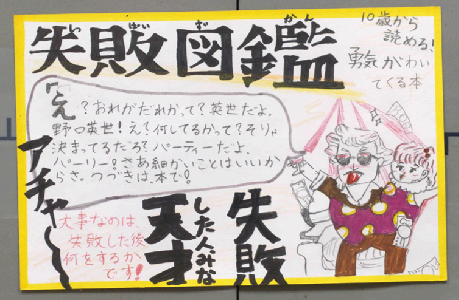 失敗図鑑
しっぱいずかん
10歳から
読める!
勇気がわい
てくる本
「え?おれがだれかって?英世だよ。
野口英世!え?何してるかって?そりゃ
決まってるだろ?パーティーだよ。
パーリー!さあ細かいことはいいか
らさ。つづきは、本で!
アチャ〜
失敗
した人みな
天才
大事なのは、
失敗した後
何をするか
です!